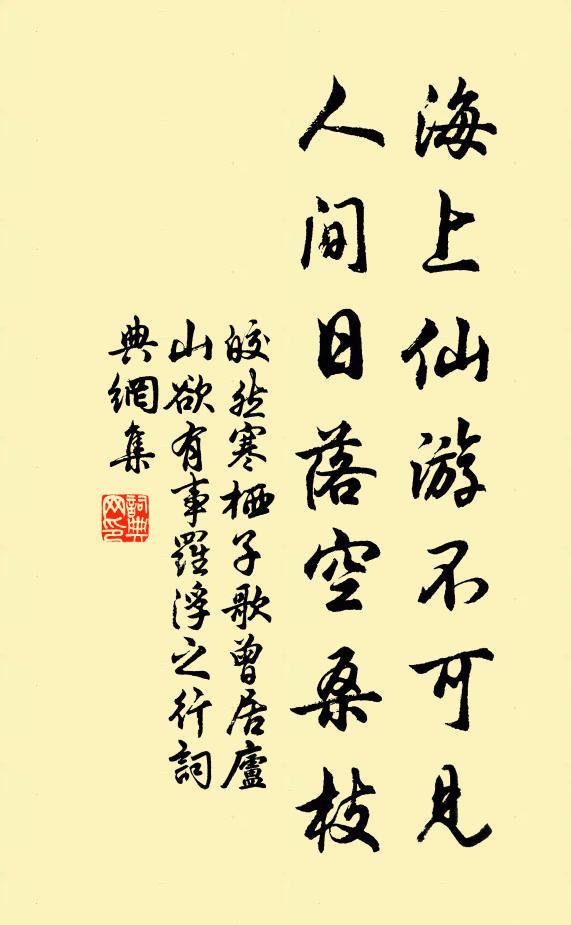 海上仙游不可见
人间日落空桑枝
皎然寒栖子歌曾居廬
山欲有事羅浮之行詞
典網集
詞典
网印